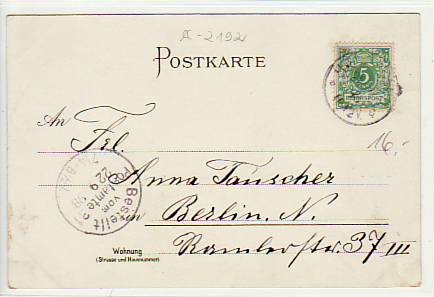 A-2192
POSTKARTE
5
REICHSPOST
16,-
An
Frl.
Anna Tauscher
in Berlin, N.
Wohnung
(Strasse und Hausnummer)
Ramlerstr. 37 III
Bestellt
vom
Postamte
22 9
98